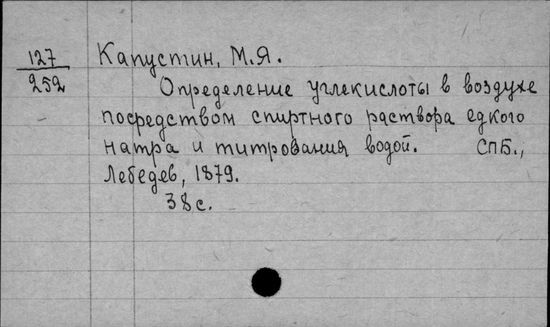 127 Капустин, М.Я.
252 Определение углекислоты в воздухе
посредством спиртного раствора едкого
натра и титрования водой. СПБ.,
Лебедев, 1879.
38 с.